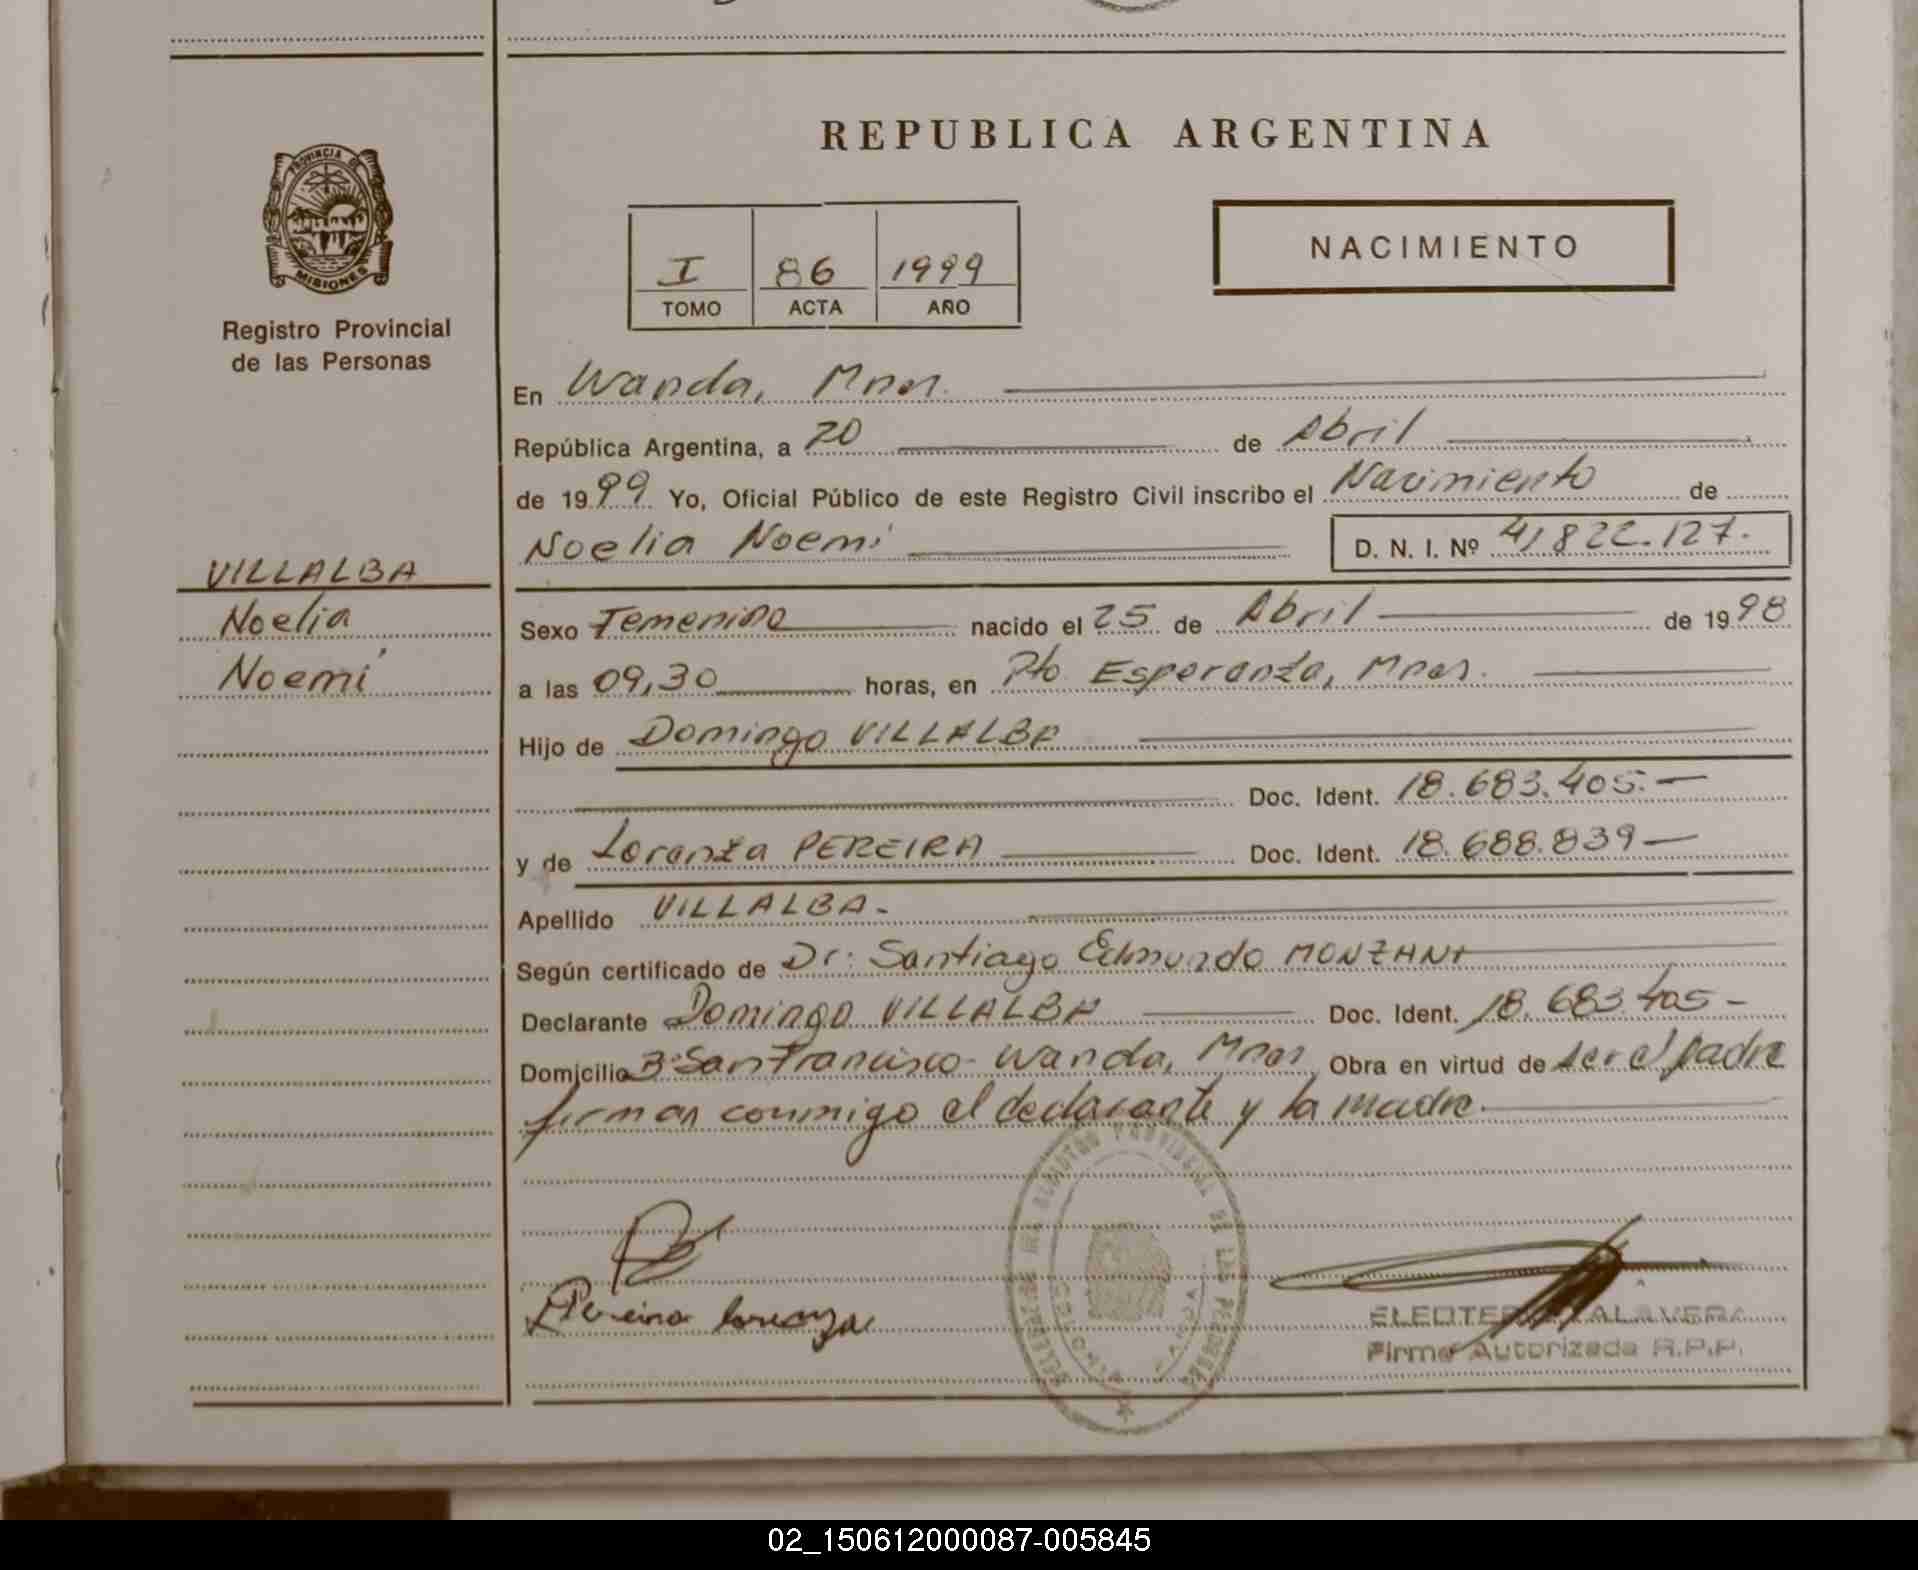 PROVINCIA DE
MISIONES
Registro Provincial
de las Personas
VILLALBA
Noelia
Noemí
REPUBLICA ARGENTINA
I 86 1999
TOMO ACTA AÑO
NACIMIENTO
En Wanda, Mnes.
República Argentina, a 20 de Abril
de 1999 Yo, Oficial Público de este Registro Civil inscribo el Nacimiento de
Noelia Noemí D. N. I. Nº 41.822.127.
Sexo Femenino nacido el 25 de Abril de 1998
a las 09,30 horas, en Pto. Esperanza, Mnes.
Hijo de Domingo VILLALBA
Doc. Ident. 18.683.405.-
y de Lorenza PEREIRA Doc. Ident. 18.688.839-
Apellido VILLALBA-
Según certificado de Dr: Santiago Edmundo
Declarante Domingo VILLALBA Doc. Ident. 18.683.405-
Domicilio Bº San Francisco- Wanda, Mnes Obra en virtud de ser el padre
firman conmigo el declarante y la madre.
Pereira Lorenza
REGISTRO PROVINCIAL DE LAS PERSONAS
WANDA
MISIONES
Firma Autorizada R.P.P.
02_150612000087-005845